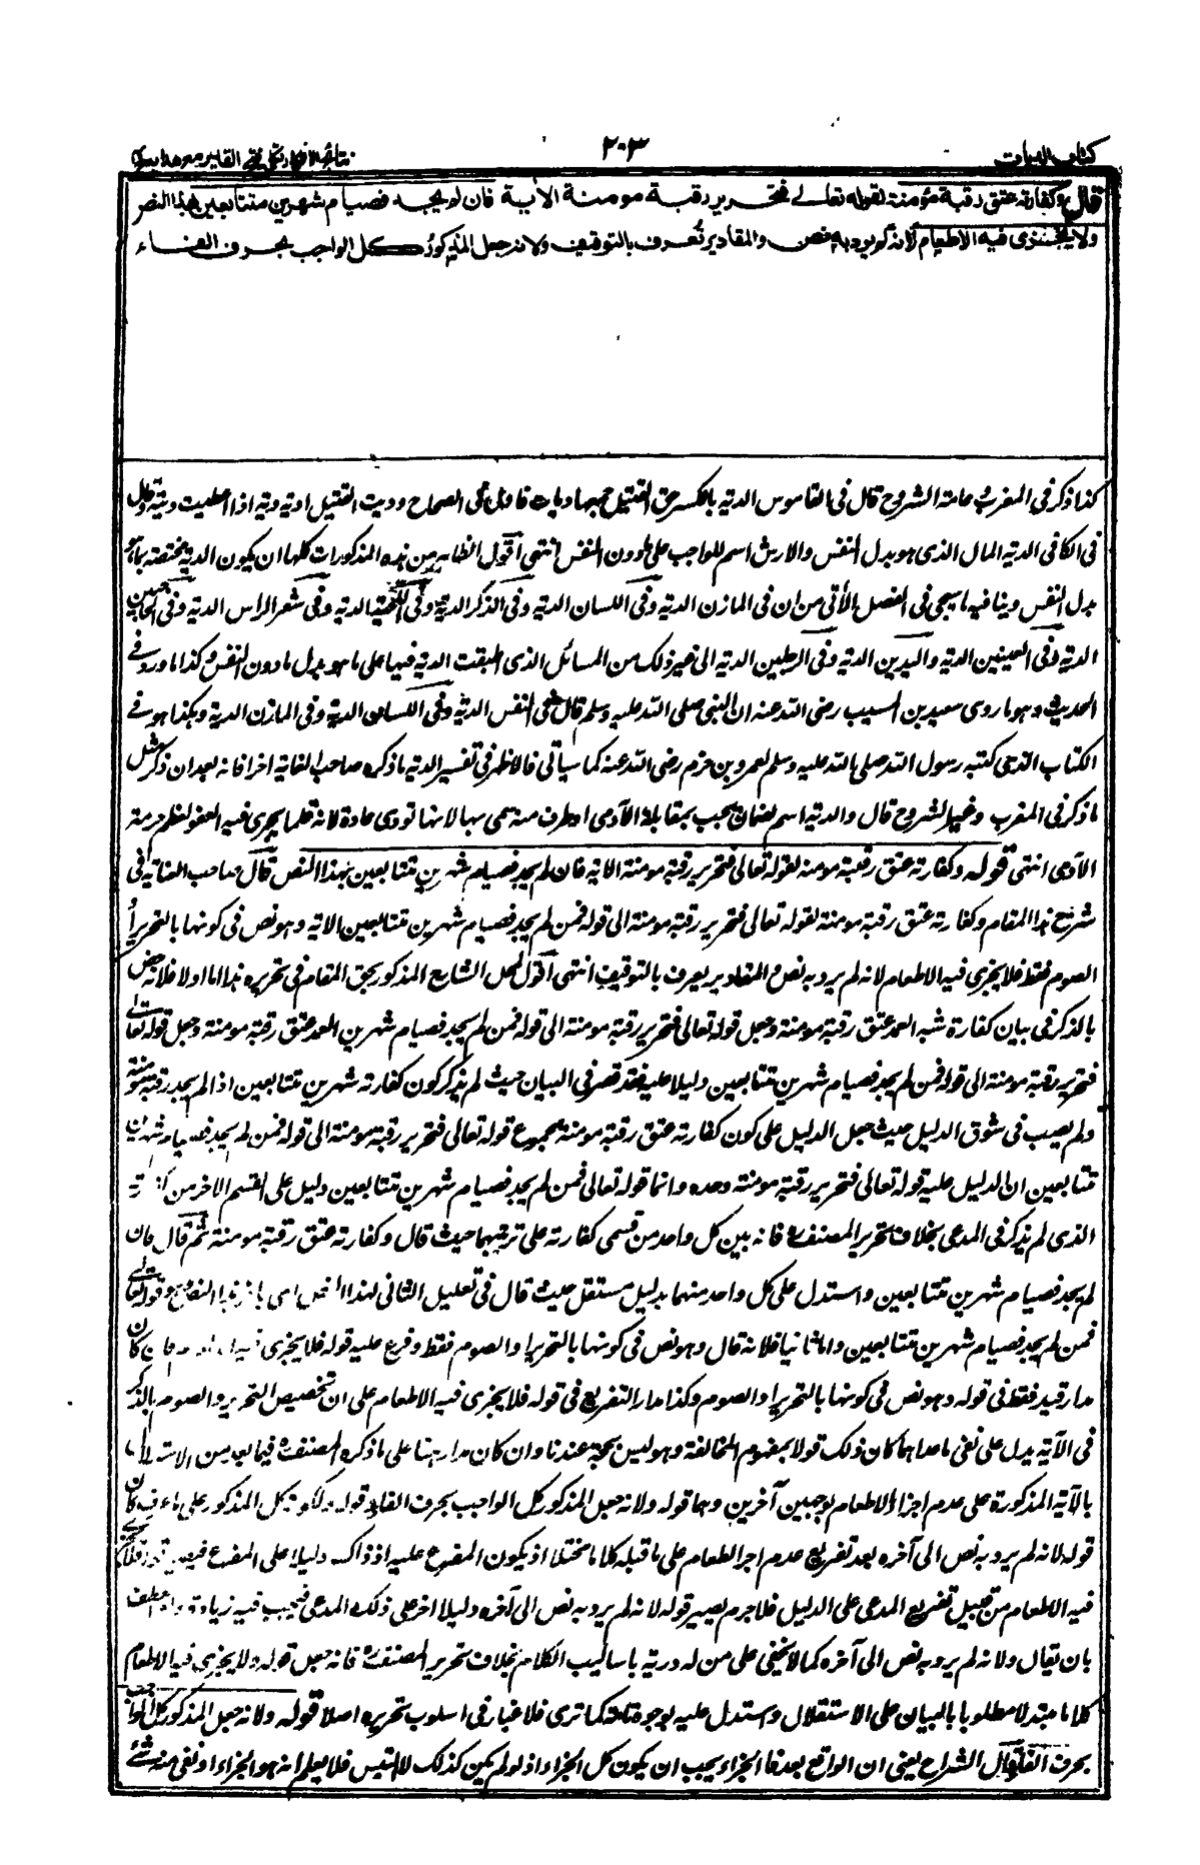 كتاب الديات
٢٠٣
نتائج الافكار تكملة فتح القدير مع هداية
قال وكفارته عتق رقبة مؤمنة لقوله تعالى فتحرير رقبة مومنة الآية فان لم يجد فصيام شهرين متتابعين بهذا النص
ولا يجزئ فيه الاطعام لانه لم يرد به نص والمقادير تعرف بالتوقيف ولانه جعل المذكور كل الواجب بحرف الفاء
كذا ذكر فى المغرب وعامة الشروح قال فى القاموس الدية بالكسر حق القتيل جمعها ديات قال فى الصحاح وديت القتيل اديه دية اذا اعطيت ديته وقال
فى الكافى الدية المال الذى هو بدل النفس والارش اسم للواجب على ما دون النفس انتهى اقول الظاهر من هذه المذكورات كلها ان يكون الدية مختصة بما هو
بدل النفس وينافيه ما سيجئ فى الفصل الآتى من ان فى المازن الدية وفى اللسان الدية وفى الذكر الدية وفى اللحية الدية وفى شعر الراس الدية وفى الحاجبين
الدية وفى العينين الدية واليدين الدية وفى الرجلين الدية الى غير ذلك من المسائل الذى اطبقت الدية فيها على ما هو بدل ما دون النفس وكذا ما ورد فى
الحديث وهو ما روى سعيد بن المسيب رضى الله عنه ان النبى صلى الله عليه وسلم قال فى النفس الدية وفى اللسان الدية وفى المازن الدية وهكذا هو فى
الكتاب الذى كتبه رسول الله صلى الله عليه وسلم لعمرو بن حزم رضى الله عنه كما سياتى فالاظهر فى تفسير الدية ما ذكره صاحب الغاية اخرا فانه بعد ان ذكر مثل
ما ذكر فى المغرب وغير الشروح قال والدية اسم لضمان يجب بمقابلة الآدمى او طرف منه سمى بها لانها تودى عادة لانه قلما يجرى فيه العفو لعظم حرمة
الآدمى انتهى قوله وكفارته عتق رقبة مومنه لقوله تعالى فتحرير رقبة مومنة الاية فان لم يجد فصيام شهرين متتابعين بهذا النص قال صاحب العناية فى
شرح هذا المقام وكفارته عتق رقبة مومنة لقوله تعالى فتحرير رقبة مومنة الى قوله فمن لم يجد فصيام شهرين متتابعين الاية وهو نص فى كونها بالتحرير أو
الصوم فقط فلا يجزى فيه الاطعام لانه لم يرد به نص والمقادير يعرف بالتوقيف انتهى اقول اخل الشارح المذكور بحق المقام فى تحريره هذا اما اولا فلانه خص
بالذكر فى بيان كفارة شبه العمد عتق رقبة مومنة وجعل قوله تعالى فتحرير رقبة مومنة الى قوله فمن لم يجد فصيام شهرين العمد عتق رقبة مومنة وجعل قوله تعالى
فتحرير رقبة مومنة الى قوله فمن لم يجد فصيام شهرين متتابعين دليلا عليه فقد قصر فى البيان حيث لم يذكر كون كفارته شهرين متتابعين اذا لم يجد رقبة مومنة
ولم يصب فى سوق الدليل حيث جعل الدليل على كون كفارته عتق رقبة مومنة مجموع قوله تعالى فتحرير رقبة مومنة الى قوله فمن لم يجد فصيام شهرين
متتابعين ان الدليل عليه قوله تعالى فتحرير رقبة مومنة وحده وانما قوله تعالى فمن لم يجد فصيام شهرين متتابعين دليل على القسم الاخر من
الذى لم يذكر فى المدعى بخلاف تحرير المصنف فانه بين كل واحد من قسمى كفارته على ترتيبهما حيث قال وكفارته عتق رقبة مومنة ثم قال فان
لم يجد فصيام شهرين متتابعين واستدل على كل واحد منهما بدليل مستقل حيث قال فى تعليل الثانى لهذا النص اى بهذا النص وقوله تعالى
فمن لم يجد فصيام شهرين متتابعين واما ثانيا فلانه قال وهو نص فى كونها بالتحرير او الصوم فقط وفرع عليه قوله فلا يجزى فيه الاطعام فان كان
مدار قيد فقط فى قوله وهو نص فى كونها بالتحرير او الصوم وكذا مدار التفريع فى قوله فلا يجزى فيه الاطعام على ان تخصيص التحرير والصوم بالذكر
فى الآية يدل على نفى ما عداهما كان ذلك قولا بمفهوم المخالفة وهو ليس بحجة عندنا وان كان مدارهما على ما ذكره المصنف فيما بعد من الاستدلال
بالآية المذكورة على عدم اجزاء الاطعام بوجهين آخرين وهما قوله ولانه جعل المذكور كل الواجب بحرف الفاء قوله ولكونه كل المذكور على ما عرف كان
قوله لانه لم يرد به نص الى آخره بعد تفريع عدم اجزاء الطعام على ما قبله كلاما مختلا اذ يكون المفرع عليه اذ ذاك دليلا على المفرع
فيه الاطعام من قبيل تفريع المدعى على الدليل فلا جرم يصير قوله لانه لم يرد به نص الى آخره دليلا اخر على ذلك المدعى فيجب فيه زيادة واو العطف
بان يقال ولانه لم يرد به نص الى آخره كما لا يخفى على من له دربة باساليب الكلام بخلاف تحرير المصنف فانه جعل قوله ولا يجزى فيه الاطعام
كلاما مبتدا مطلوبا بالبيان على الاستقلال واستدل عليه بوجوه ثلثة كما ترى فلا غبار فى اسلوب تحريره اصلا قوله ولانه جعل المذكور كل الواجب
بحرف الفاء قال الشراح يعنى ان الواقع بعد فاء الجزاء يجب ان يكون كل الجزاء اذ لو لم يكن كذلك لالتبس فلا يعلم انه هو الجزاء او بقى منه شئ